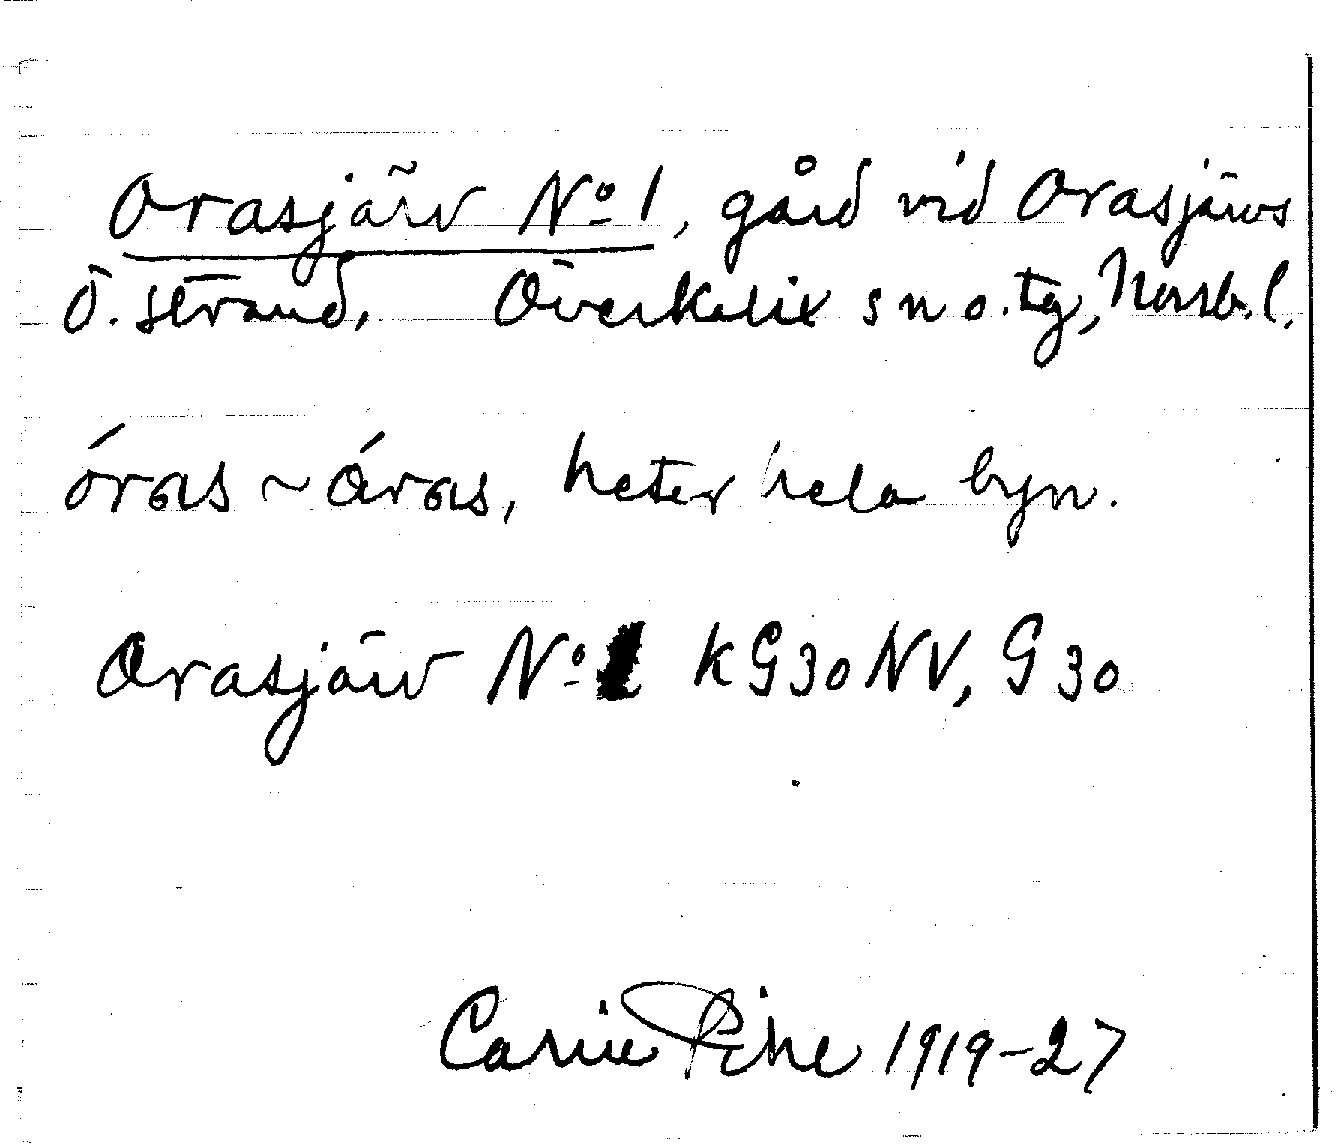 Orasjärv No 1, gård vid Orasjärvs
Ö. strand. Överkalix sn o. tg, Norrb. l.
óras ~ óras, heter hela byn.
Orasjärv No 1 K G30 NV, G 30
Carin Pihl 1919-27